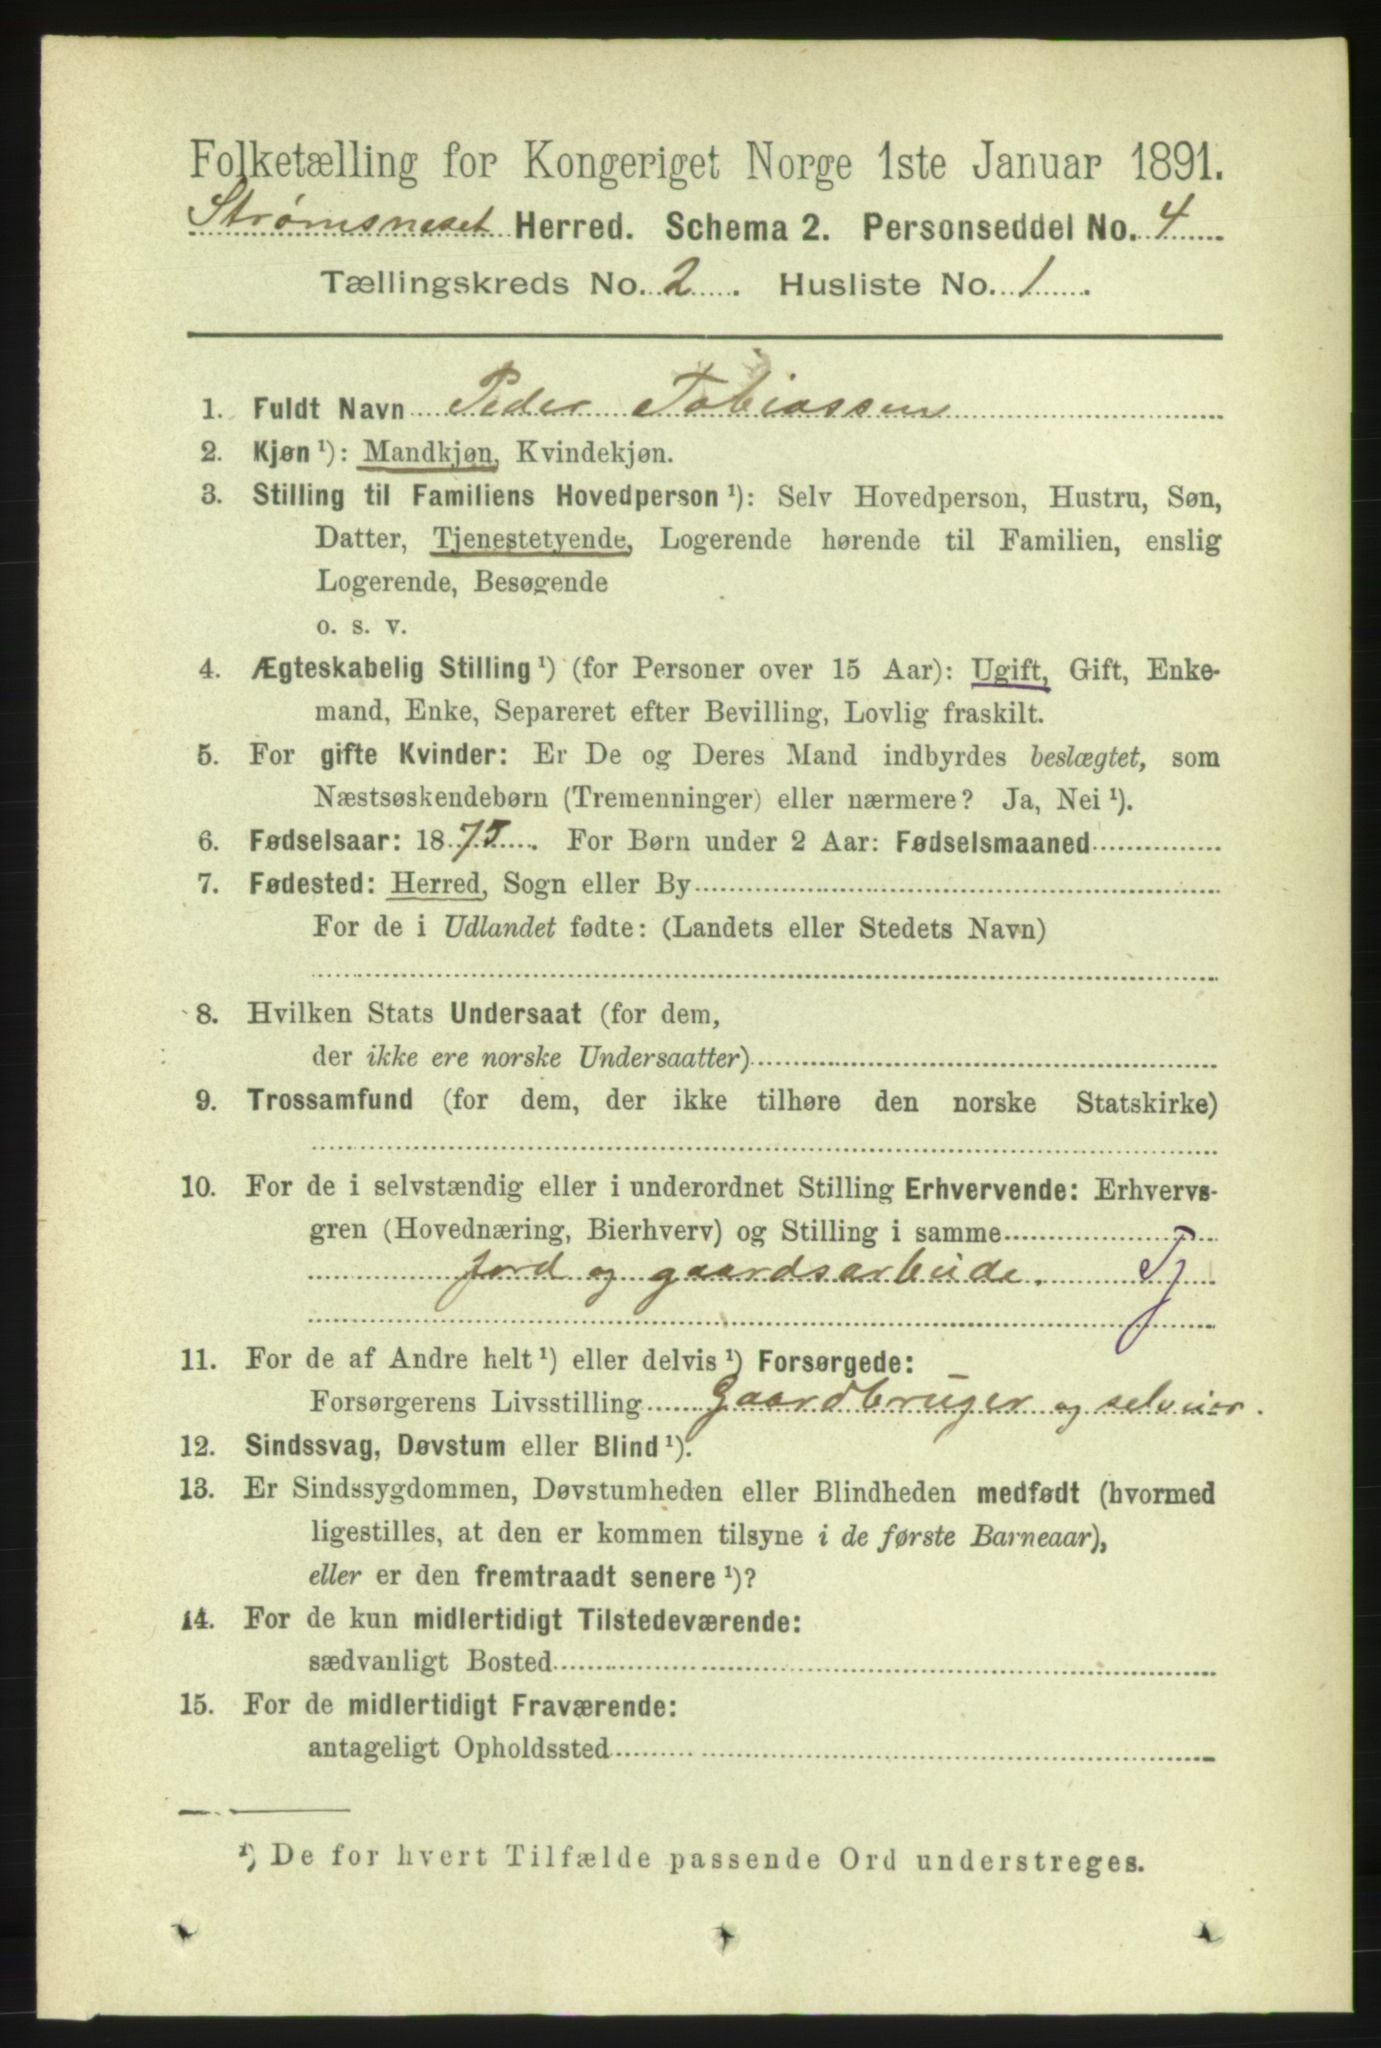 Folketælling for Kongeriget Norge 1ste Januar 1891.
Strømsneset Herred. Schema 2. Personseddel No. 4
Tællingskreds No. 2. Husliste No. 1.
1. Fuldt Navn Peder Tobiassen
2. Kjøn ¹): Mandkjøn, Kvindekjøn.
3. Stilling til Familiens Hovedperson ¹): Selv Hovedperson, Hustru, Søn,
Datter, Tjenestetyende, Logerende hørende til Familien, enslig
Logerende, Besøgende
o. s. v.
4. Ægteskabelig Stilling ¹) (for Personer over 15 Aar): Ugift, Gift, Enke-
mand, Enke, Separeret efter Bevilling, Lovlig fraskilt.
5. For gifte Kvinder: Er De og Deres Mand indbyrdes beslægtet, som
Næstsøskendebørn (Tremenninger) eller nærmere? Ja, Nei ¹).
6. Fødselsaar: 1875. For Børn under 2 Aar: Fødselsmaaned
7. Fødested: Herred, Sogn eller By
For de i Udlandet fødte: (Landets eller Stedets Navn)
8. Hvilken Stats Undersaat (for dem,
der ikke ere norske Undersaatter)
9. Trossamfund (for dem, der ikke tilhøre den norske Statskirke)
10. For de i selvstændig eller i underordnet Stilling Erhvervende: Erhvervs-
gren (Hovednæring, Bierhverv) og Stilling i samme
jord og gaardsarbeide. Tj
11. For de af Andre helt ¹) eller delvis ¹) Forsørgede:
Forsørgerens Livsstilling Gaardbruger og selveier.
12. Sindssvag, Døvstum eller Blind ¹).
13. Er Sindssygdommen, Døvstumheden eller Blindheden medfødt (hvormed
ligestilles, at den er kommen tilsyne i de første Barneaar),
eller er den fremtraadt senere ¹)?
14. For de kun midlertidigt Tilstedeværende:
sædvanligt Bosted
15. For de midlertidigt Fraværende:
antageligt Opholdssted
¹) De for hvert Tilfælde passende Ord understreges.